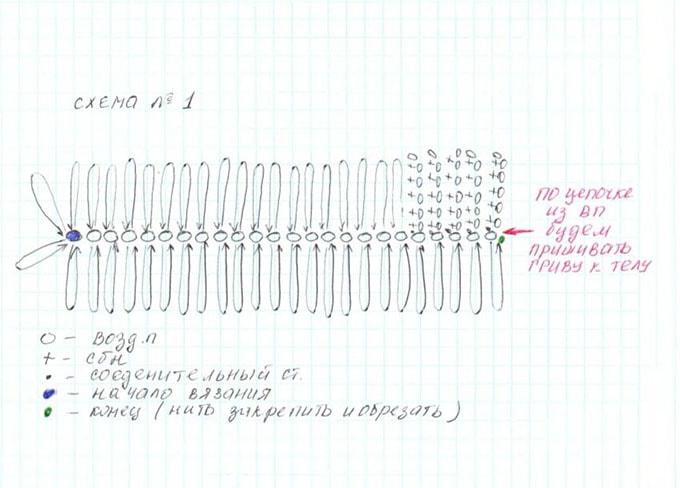 схема № 1
по цепочке
из ВП
будем
пришивать
гриву к телу
О – возд.п
+ – сбн
• – соеденительный ст.
– начало вязания
– конец (нить закрепить и обрезать)